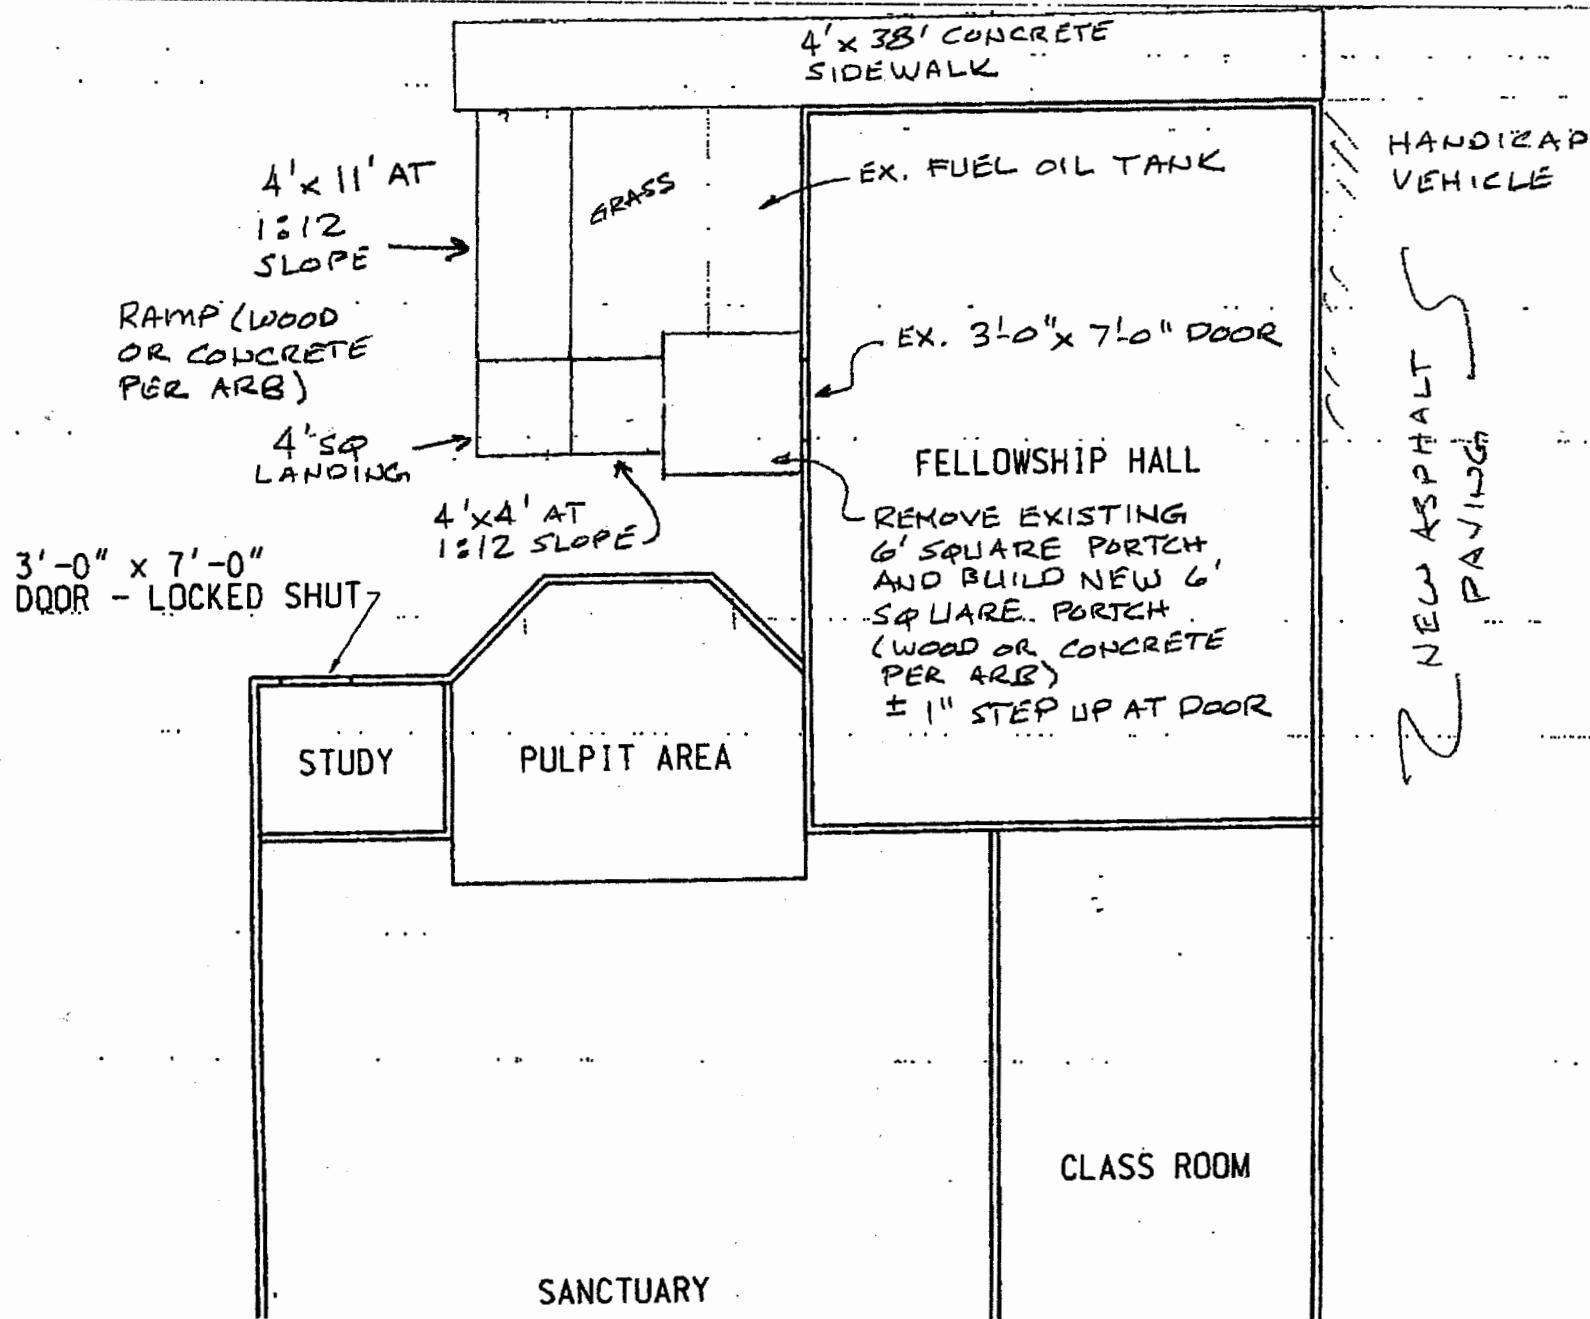 4' x 38' CONCRETE
SIDEWALK
4' x 11' AT
1:12
SLOPE
GRASS
EX. FUEL OIL TANK
HANDICAP
VEHICLE
RAMP (WOOD
OR CONCRETE
PER ARB)
EX. 3'-0" x 7'-0" DOOR
4' SQ
LANDING
4'x4' AT
1:12 SLOPE
FELLOWSHIP HALL
REMOVE EXISTING
6' SQUARE PORTCH
AND BUILD NEW 6'
SQUARE PORTCH
(WOOD OR CONCRETE
PER ARB)
± 1" STEP UP AT DOOR
NEW ASPHALT
PAVING
3'-0" x 7'-0"
DOOR - LOCKED SHUT
STUDY
PULPIT AREA
CLASS ROOM
SANCTUARY